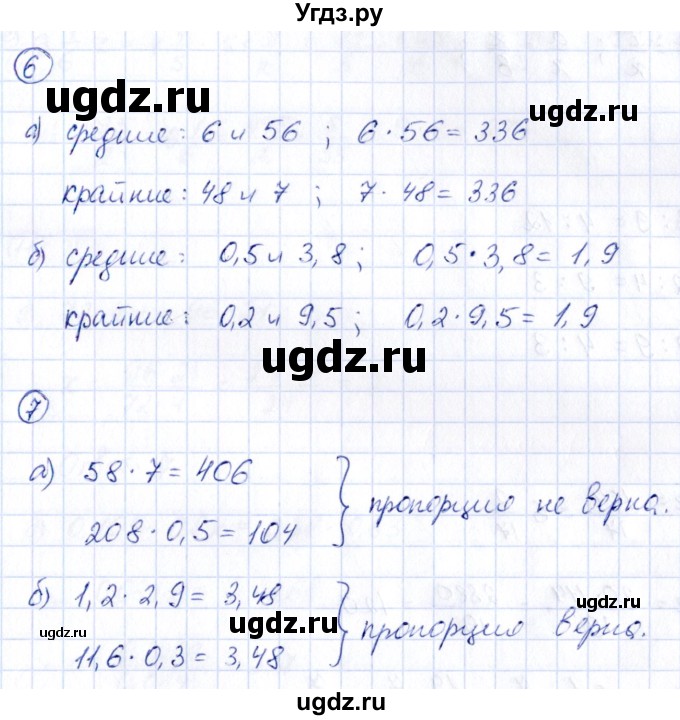 Угдз.ру
6
ugdz.ru
ugdz.ru
а) средние: 6 и 56 ; 6·56=336
крайние: 48 и 7 ; 7·48=336
б) средние: 0,5 и 3,8 ; 0,5·3,8=1,9
крайние: 0,2 и 9,5 ; 0,2·9,5=1,9
ugdz.ru
7
а) 58·7=406
208·0,5=104
} пропорция не верна.
б) 1,2·2,9=3,48
11,6·0,3=3,48
} пропорция верна.
ugdz.ru
ugdz.ru
ugdz.ru
ugdz.ru